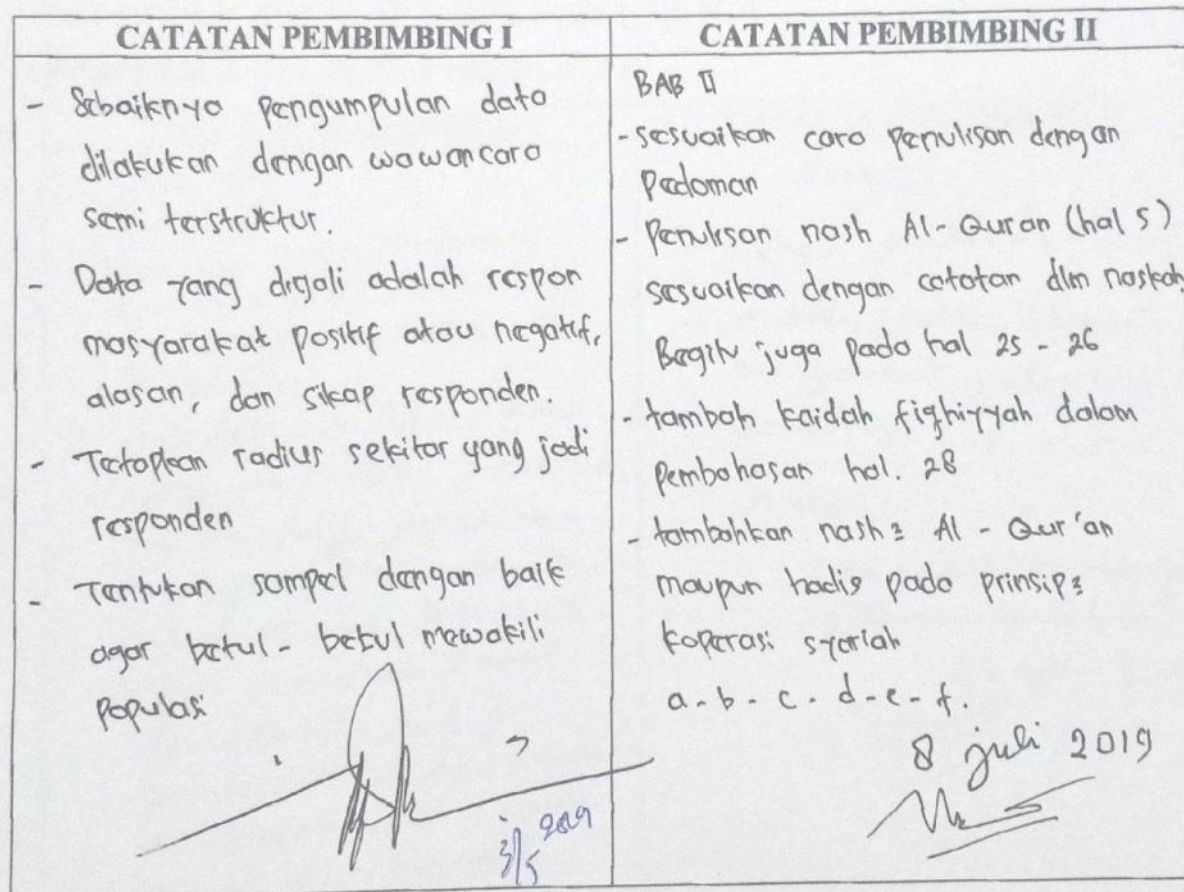 CATATAN PEMBIMBING I
- Sebaiknya pengumpulan data
dilakukan dengan wawancara
semi terstruktur.
- Data yang digali adalah respon
masyarakat positif atau negatif,
alasan, dan sikap responden.
- Tetapkan radius sekitar yang jadi
responden
- Tentukan sampel dengan baik
agar betul-betul mewakili
populasi
3/5 2019
CATATAN PEMBIMBING II
BAB II
- sesuaikan cara penulisan dengan
Pedoman
- Penulisan nash Al-Quran (hal 5)
sesuaikan dengan catatan dlm naskah,
Begitu juga pada hal 25 - 26
- tambah kaidah fiqhiyyah dalam
pembahasan hal. 28
- tambahkan nash2 Al - Qur'an
maupun hadis pada prinsip2
koperasi syariah
a - b - c - d - e - f.
8 juli 2019